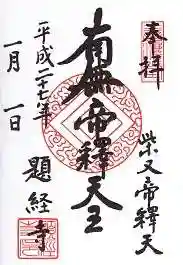 奉拝
柴又帝釋天
南無帝釋天王
平成二十七年
一月一日
題経寺